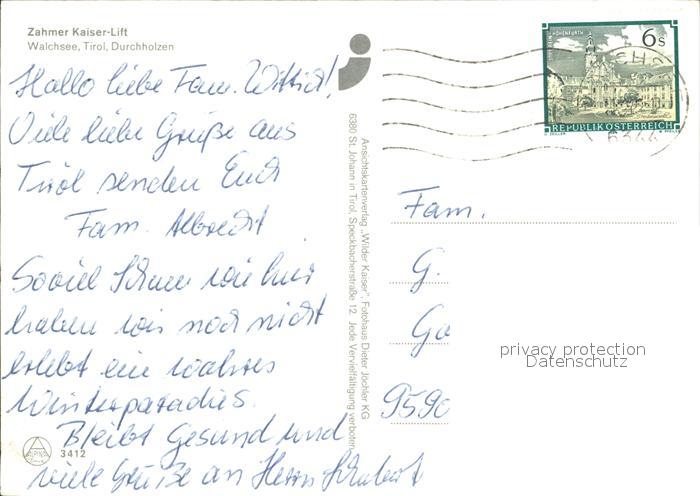 Zahmer Kaiser-Lift
Walchsee, Tirol, Durchholzen
Hallo liebe Fam. Wittich!,
Viele liebe Grüße aus
Tirol senden Euch
Fam. Albrecht
Soviel Schnee wie hier
haben wir noch nicht
erlebt ein wahres
Winterparadies.
Bleibt Gesund und
viele Grüße an Herrn Schubert
3412
Ansichtskartenverlag „Wilder Kaiser", Fotohaus Dieter Jöchler KG
6380 St. Johann in Tirol, Speckbacherstraße 12. Jede Vervielfältigung verboten.
6 S
REPUBLIK ÖSTERREICH
Fam.
G.
Ga
9590
privacy protection
Datenschutz